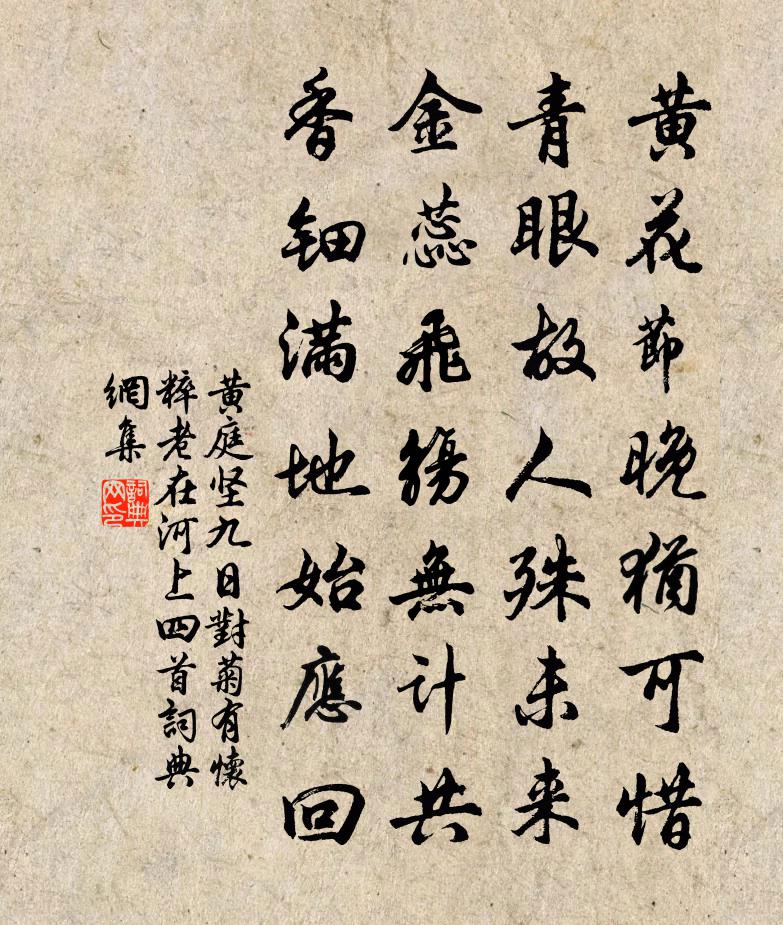 黄花節晚猶可惜
青眼故人殊未来
金蕊飛觴無计共
香钿满地始應回
黄庭坚九日對菊有懷
粹老在河上四首詞典
網集
詞典网印